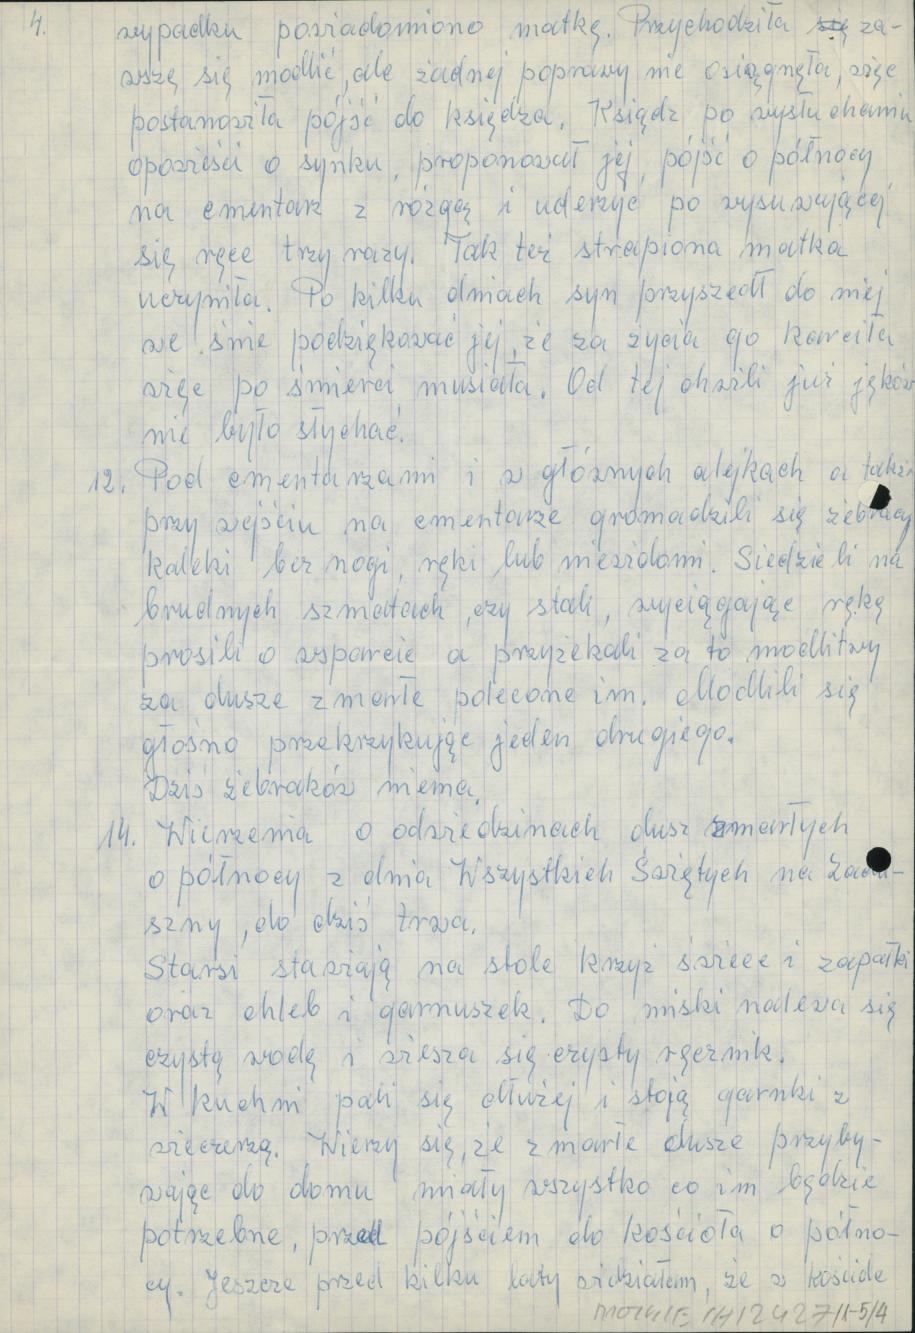 4.
wypadku powiadomiono matkę. Przychodziła się za-
wszę się modlić, ale żadnej poprawy nie osiągnęła, więc
postanowiła pójść do księdza. Ksiądz po wysłuchaniu
opowieści o synku, proponował jej, pójść o północy
na cmentarz z rózgą i uderzyć po wysuwającej
się ręce trzy razy. Tak też strapiona matka
uczyniła. Po kilku dniach syn przyszedł do niej
we śnie podziękować jej, że za życia go karciła
więc po śmierci musiała. Od tej chwili już jęków
nie było słychać.
12. Pod cmentarzami i w głównych alejkach a także
przy wejściu na cmentarze gromadzili się żebracy
kaleki bez nogi, ręki lub niewidomi. Siedzieli na
brudnych szmatach, czy stali, wyciągając ręką
prosili o wsparcie a przyżekali za to modlitwy
za dusze zmarłe polecone im. Modlili się
głośno przekrzykując jeden drugiego.
Dziś żebraków niema.
14. Wierzenia o odwiedzinach dusz zmarłych
o północy z dnia Wszystkich Świętych na Zadu-
szny, do dziś trwa.
Starsi stawiają na stole krzyż świece i zapałki
oraz chleb i garnuszek. Do miski nalewa się
czystą wodę i wiesza się czysty ręcznik.
W kuchni pali się dłużej i stoją garnki z
wieczerzą. Wierzy się, że zmarłe dusze przyby-
wając do domu miały wszystko co im będzie
potrzebne, przed pójściem do kościoła o półno-
cy. Jeszcze przed kilku laty widziałam, że w kościele
12427/1-5/4